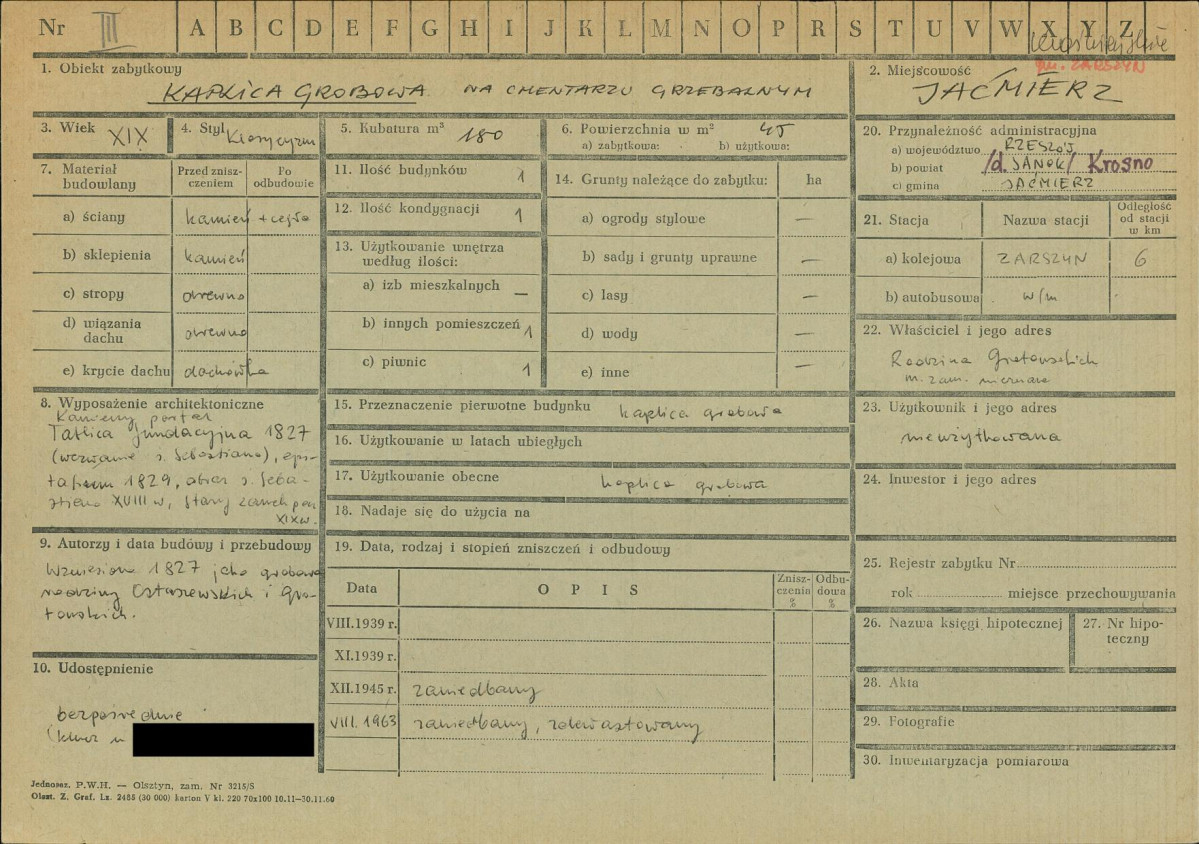 Nr III A B C D E F G H I J K L M N O P R S T U V W X Y Z
gm. ZARSZYN
1. Obiekt zabytkowy
KAPLICA GROBOWA NA CMENTARZU GRZEBALNYM
2. Miejscowość
JAĆMIERZ
3. Wiek XIX
4. Styl Klasycyzm
5. Kubatura m³ 180
6. Powierzchnia w m² 45
a) zabytkowa: b) użytkowa:
7. Materiał budowlany
Przed zniszczeniem
Po odbudowie
a) ściany kamień + cegła
b) sklepienia kamień
c) stropy drewno
d) wiązania dachu drewno
e) krycie dachu dachówka
8. Wyposażenie architektoniczne
Kamienny portal
Tablica fundacyjna 1827
(wezwanie s. Sebastiana), epi-
tafium 1829, obraz s. Seba-
stiana XVIII w, stary zamek
XIX w.
9. Autorzy i data budowy i przebudowy
Wzniesiona 1827 jako grobowa
rodziny Ostaszewskich i Gro-
towskich.
10. Udostępnienie
bezpośrednie
(klucz u
11. Ilość budynków 1
12. Ilość kondygnacji 1
13. Użytkowanie wnętrza
według ilości:
a) izb mieszkalnych —
b) innych pomieszczeń 1
c) piwnic 1
14. Grunty należące do zabytku: ha
a) ogrody stylowe —
b) sady i grunty uprawne —
c) lasy —
d) wody —
e) inne —
15. Przeznaczenie pierwotne budynku kaplica grobowa
16. Użytkowanie w latach ubiegłych
17. Użytkowanie obecne kaplica grobowa
18. Nadaje się do użycia na
19. Data, rodzaj i stopień zniszczeń i odbudowy
Data OPIS Zniszczenia % Odbudowa %
VIII.1939 r.
XI.1939 r.
XII.1945 r. zaniedbany
VIII.1963 zaniedbany, zdewastowany
20. Przynależność administracyjna
a) województwo RZESZÓW
b) powiat /d. SANOK/ Krosno
c) gmina JAĆMIERZ
21. Stacja Nazwa stacji Odległość od stacji w km
a) kolejowa ZARSZYN 6
b) autobusowa w/m
22. Właściciel i jego adres
Rodzina Grotowskich
m. zam. nieznane
23. Użytkownik i jego adres
nieużytkowana
24. Inwestor i jego adres
25. Rejestr zabytku Nr
rok miejsce przechowywania
26. Nazwa księgi hipotecznej
27. Nr hipoteczny
28. Akta
29. Fotografie
30. Inwentaryzacja pomiarowa
Jednosez. P.W.H. — Olsztyn, zam. Nr 3215/S
Olszt. Z. Graf. Lz. 2485 (30 000) karton V kl. 220 70x100 10.11—30.11.60